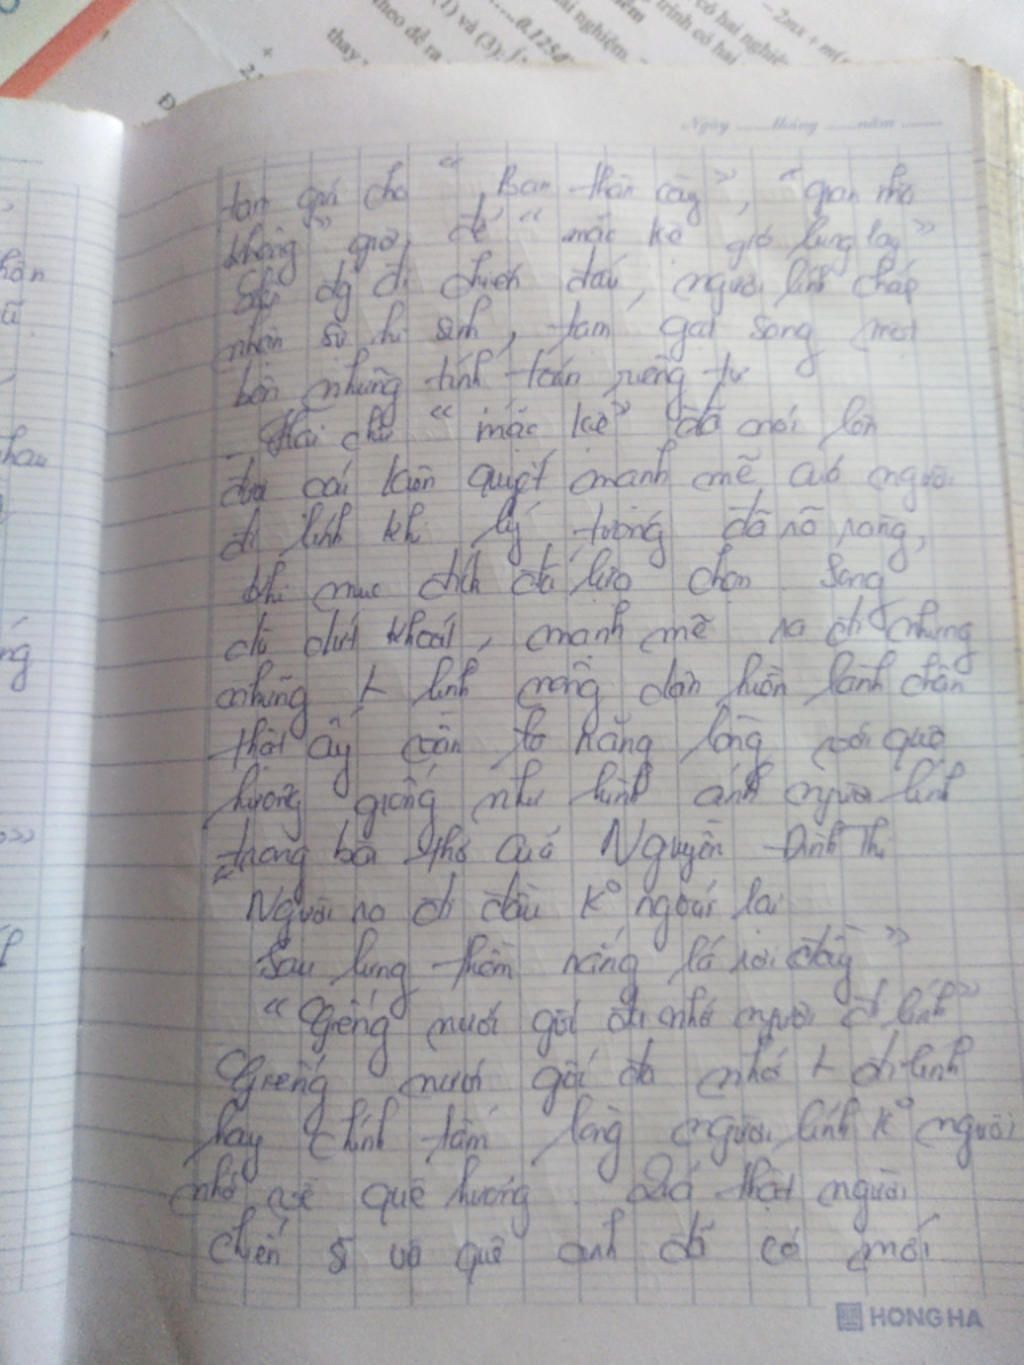 theo đề ra
(1) và (3),
0,125đ
nghiệm.
có hai nghiệm
Ngày ......tháng ......năm ......
tạm gửi cho " Bạn thân cày ", " gian nhà
không " giờ, để " mặc kệ gió lung lay "
để đi chiến đấu, người lính chấp
nhận sự hi sinh, tạm gạt sang một
bên những tính toán riêng tư
- Hai chữ " mặc kệ " đã nói lên
được cái kiên quyết mạnh mẽ của người
đi lính khi lý tưởng đã rõ ràng,
khi mục đích đã lựa chọn Song
dù dứt khoát, mạnh mẽ ra đi nhưng
những lính nông dân hiền lành chân
thật ấy vẫn nặng lòng với quê
hương giống như hình ảnh người lính
trong bài thơ của Nguyễn Đình Thi
" Người ra đi đầu k° ngoái lại
Sau lưng thềm nắng lá rơi đầy "
" Giếng nước gốc đa nhớ người đi lính "
Giếng nước gốc đa nhớ đi lính
hay chính tấm lòng người lính k° nguôi
nhớ về quê hương. Quả thật người
chiến sĩ và quê anh đã có mối
HONG HA